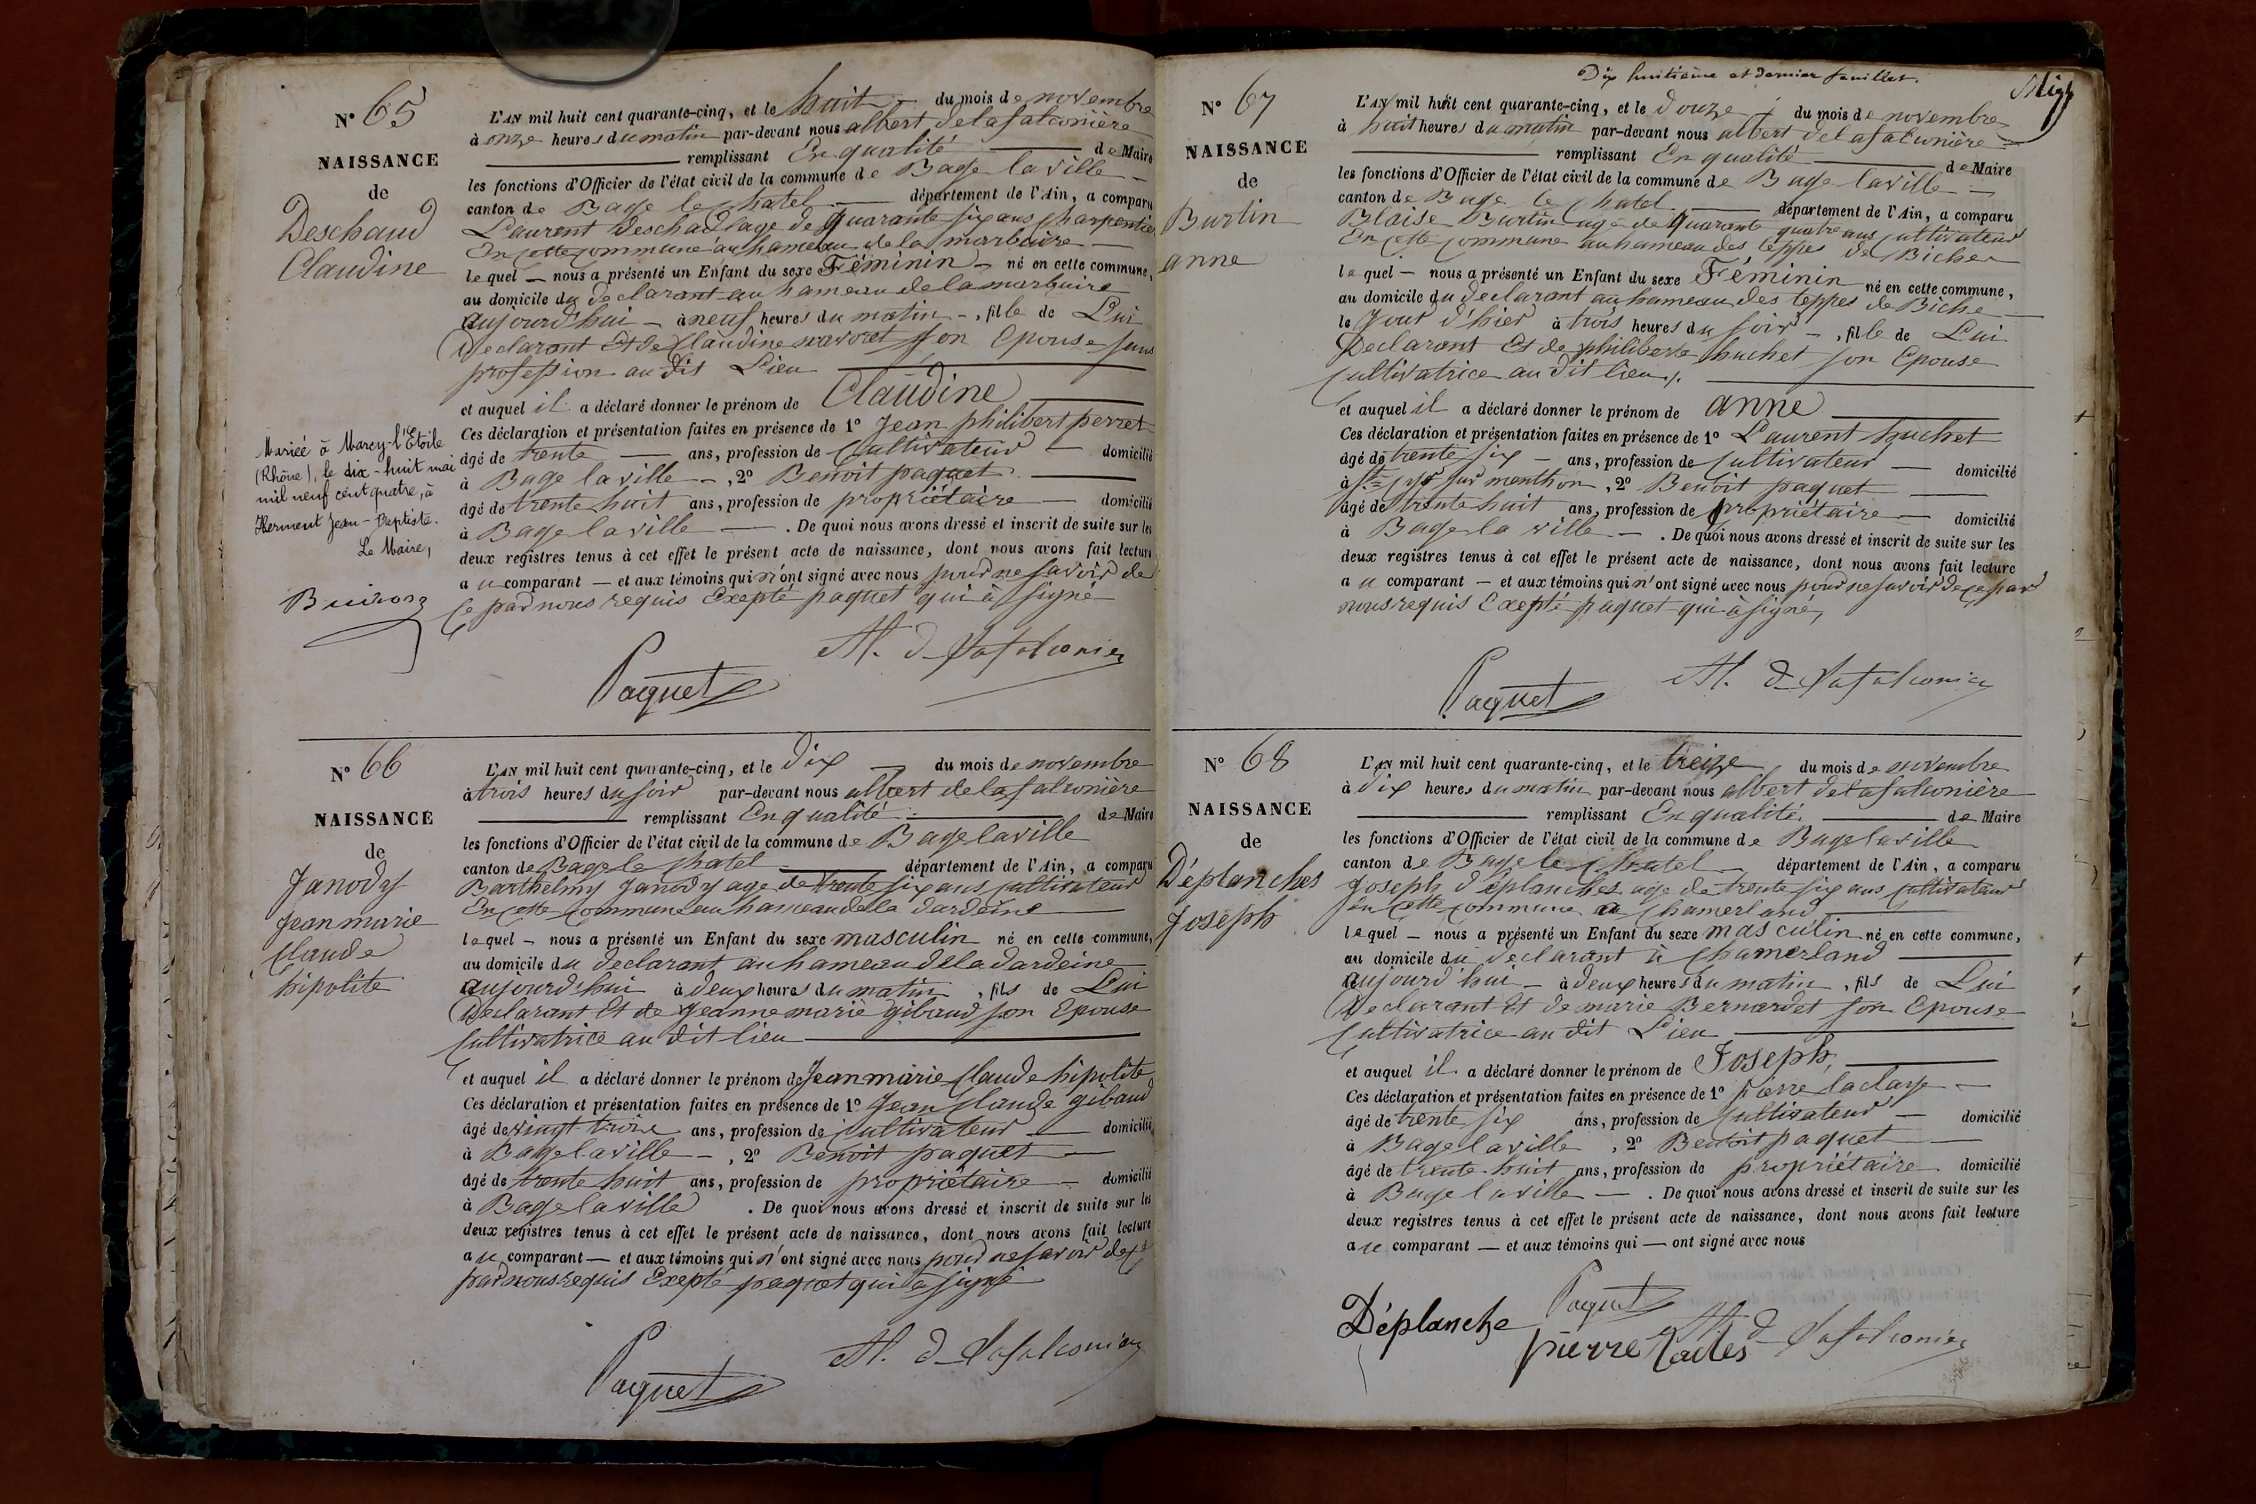 N° 65
NAISSANCE
de
Deschaud
Claudine
L'AN mil huit cent quarante-cinq, et le huit du mois de novembre
à onze heures du matin par-devant nous albert delafalconière
remplissant En qualité de Maire
les fonctions d'Officier de l'état civil de la commune de Bage la ville
canton de Bage le chatel département de l'Ain, a comparu
Laurent Deschaud age de quarante six ans charpentier
En cette commune au hameau de la
lequel nous a présenté un Enfant du sexe Féminin né en cette commune,
au domicile du declarant au hameau de la
aujourd'hui à neuf heures du matin, fille de Lui
Declarant Et de Claudine son Epouse sans
profession au dit Lieu
et auquel il a déclaré donner le prénom de Claudine
Ces déclaration et présentation faites en présence de 1° Jean philibert perret
âgé de trente ans, profession de Cultivateur domicilié
à Bage la ville, 2° Benoit paquet
âgé de trente huit ans, profession de propriétaire domicilié
à Bage la ville. De quoi nous avons dressé et inscrit de suite sur les
deux registres tenus à cet effet le présent acte de naissance, dont nous avons fait lecture
au comparant et aux témoins qui n'ont signé avec nous pour ne savoir de
ce par nous requis Exepté paquet qui à signé
Mariée à Marcy-l'Etoile
(Rhône), le dix-huit mai
mil neuf cent quatre, à
Herment Jean-Baptiste.
Le Maire,
Paquet
Al. d Lafalconier
N° 66
NAISSANCE
de
Janody
Jean marie
Claude
hipolite
L'AN mil huit cent quarante-cinq, et le Dix du mois de novembre
à trois heures du soir par-devant nous albert delafalconière
remplissant En qualité de Maire
les fonctions d'Officier de l'état civil de la commune de Bage la ville
canton de Bage le chatel département de l'Ain, a comparu
Barthelmy Janody age de trente six ans cultivateur
En cette commune au hameau de la dardeine
lequel nous a présenté un Enfant du sexe masculin né en cette commune,
au domicile du declarant au hameau de la dardeine
aujourd'hui à deux heures du matin, fils de Lui
Declarant Et de Jeanne marie gibaud son Epouse
Cultivatrice au dit lieu
et auquel il a déclaré donner le prénom de Jean marie Claude hipolite
Ces déclaration et présentation faites en présence de 1° Jean Claude gibaud
âgé de vingt trois ans, profession de Cultivateur domicilié
à Bage la ville, 2° Benoit paquet
âgé de trente huit ans, profession de propriétaire domicilié
à Bage la ville. De quoi nous avons dressé et inscrit de suite sur les
deux registres tenus à cet effet le présent acte de naissance, dont nous avons fait lecture
au comparant et aux témoins qui n'ont signé avec nous pour ne savoir de ce
par nous requis Exepté paquet qui à signé
Paquet
Al. d Lafalconier
Dix huitième et dernier feuillet.
N° 67
NAISSANCE
de
Burtin
anne
L'AN mil huit cent quarante-cinq, et le Douze du mois de novembre
à huit heures du matin par-devant nous albert delafalconière
remplissant En qualité de Maire
les fonctions d'Officier de l'état civil de la commune de Bage la ville
canton de Bage le chatel département de l'Ain, a comparu
Blaise Burtin age de quarante quatre ans cultivateur
En cette commune au hameau des teppes de Biche
lequel nous a présenté un Enfant du sexe Féminin né en cette commune,
au domicile du declarant au hameau des teppes de Biche
le Jour d'hier à trois heures du soir, fille de Lui
Declarant Et de philiberte huchet son Epouse
Cultivatrice au dit lieu.
et auquel il a déclaré donner le prénom de anne
Ces déclaration et présentation faites en présence de 1° Laurent huchet
âgé de trente six ans, profession de Cultivateur domicilié
à St cyr sur menthon, 2° Benoit paquet
âgé de trente huit ans, profession de propriétaire domicilié
à Bage la ville. De quoi nous avons dressé et inscrit de suite sur les
deux registres tenus à cet effet le présent acte de naissance, dont nous avons fait lecture
au comparant et aux témoins qui n'ont signé avec nous pour ne savoir de ce par
nous requis Exepté paquet qui à signé,
Paquet
Al. d Lafalconier
N° 68
NAISSANCE
de
Déplanches
Joseph
L'AN mil huit cent quarante-cinq, et le treize du mois de novembre
à dix heures du matin par-devant nous albert delafalconière
remplissant En qualité de Maire
les fonctions d'Officier de l'état civil de la commune de Bage la ville
canton de Bage le chatel département de l'Ain, a comparu
Joseph déplanches age de trente six ans cultivateur
en cette commune a chamerland
lequel nous a présenté un Enfant du sexe masculin né en cette commune,
au domicile du declarant à chamerland
aujourd'hui à deux heures du matin, fils de Lui
Declarant Et de marie Bernardet son Epouse
Cultivatrice au dit Lieu
et auquel il a déclaré donner le prénom de Joseph,
Ces déclaration et présentation faites en présence de 1° pierre
âgé de trente six ans, profession de Cultivateur domicilié
à Bage la ville, 2° Benoit paquet
âgé de trente huit ans, profession de propriétaire domicilié
à Bage la ville. De quoi nous avons dressé et inscrit de suite sur les
deux registres tenus à cet effet le présent acte de naissance, dont nous avons fait lecture
au comparant et aux témoins qui ont signé avec nous
Déplanche
Paquet
pierre
Al. d Lafalconier